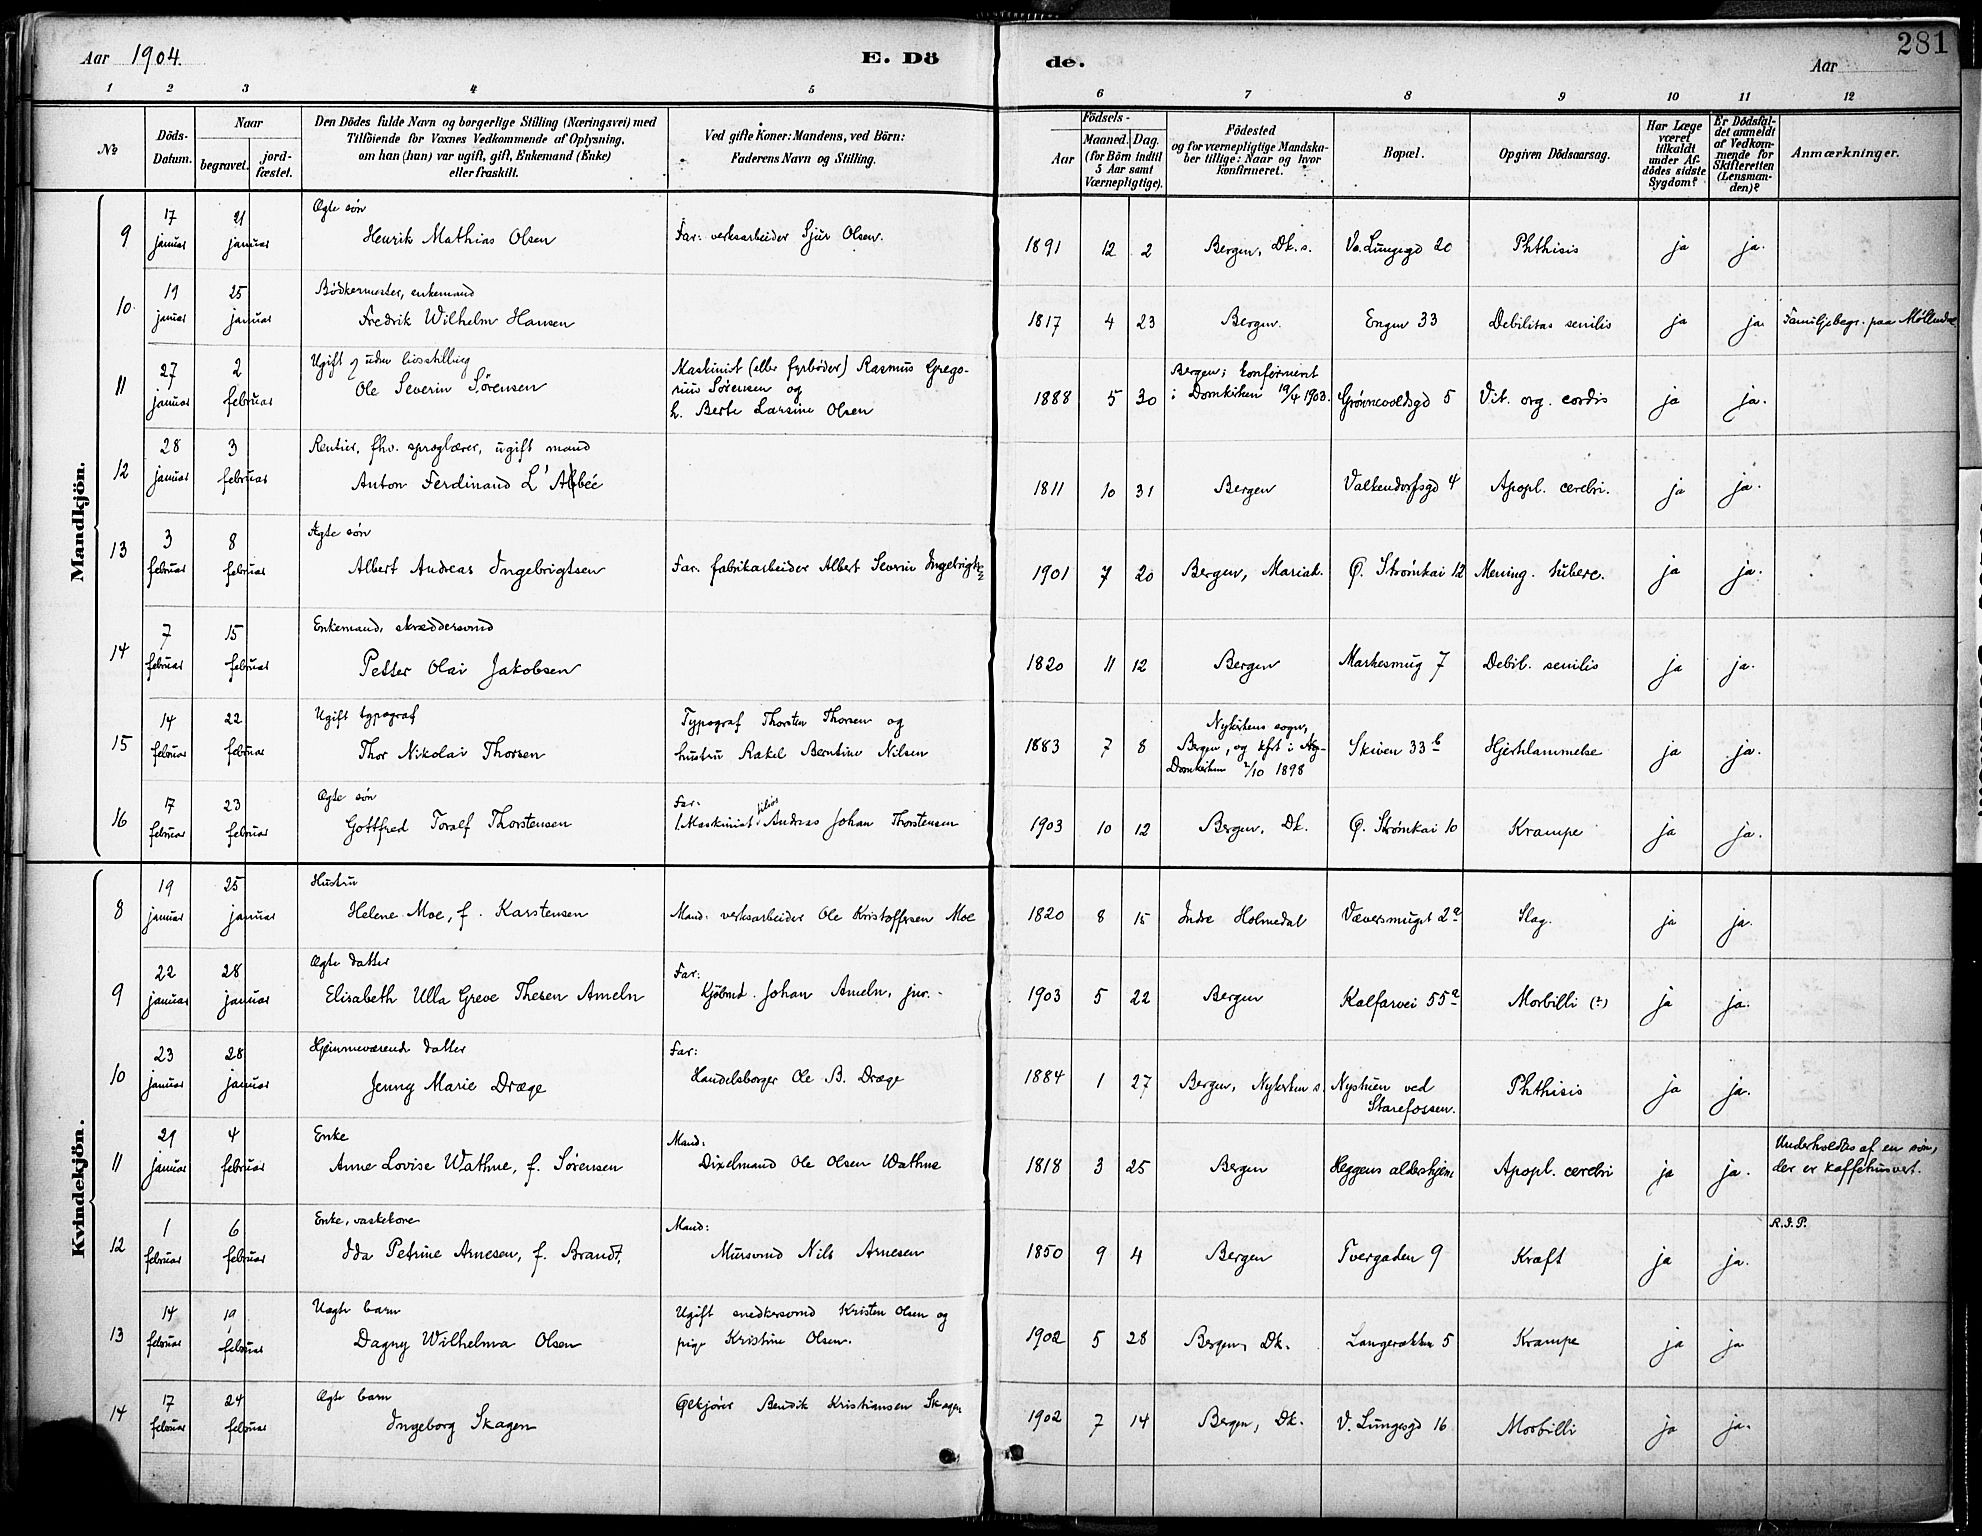 281
Aar 1904.
E. Dö
de.
Aar
1 2 3 4 5 6 7 8 9 10 11 12
No
Döds-
Datum.
Naar
begravet.
jord-
fæstet.
Den Dödes fulde Navn og borgerlige Stilling (Næringsvei) med
Tilföiende for Voxnes Vedkommende af Oplysning,
om han (hun) var ugift, gift, Enkemand (Enke)
eller fraskilt.
Ved gifte Koner: Mandens, ved Börn:
Faderens Navn og Stilling.
Födsels-
Aar
Maaned. Dag.
(for Börn indtil
5 Aar samt
Værnepligtige).
Födested
og for værnepligtige Mandska-
ber tillige: Naar og hvor
konfirmeret.
Bopæl.
Opgiven Dödsaarsag.
Har Læge
været
tilkaldt
under Af-
dödes sidste
Sygdom?
Er Dödsfal-
det anmeldt
af Vedkom-
mende for
Skifteretten
(Lensman-
den)?
Anmærkninger.
Mandkjön.
9 17 januar 21 januar
Ægte søn
Henrik Mathias Olsen
Far: verksarbeider Sjur Olsen.
1891 12 2 Bergen, Dk. s. Ve. Lungegd 20 Phthisis ja ja.
10. 19 januar 25 januar
Bödkermester, enkemand
Fredrik Wilhelm Hansen
1817 4 23 Bergen. Engen 33 Debilitas senilis ja ja. Familjebegr. paa Møllendal
11 27 januar 2 februar
Ugift, uden livsstilling
Ole Severin Sørensen
Maskinist (eller fyrbøder) Rasmus Grego-
rius Sørensen og
h. Berte Larsine Olsen
1888 5 30
Bergen; konfirmert
i Domkirken 19/4 1903.
Grønnevoldsgd 5 Vit. org. cordis ja ja.
12 28 januar 3 februar
Rentier, fhv. sproglærer, ugift mand
Anton Ferdinand L'Abbée
1811 10 31 Bergen Valkendorfsgd 4 Apopl. cerebri. ja ja.
13 3 februar 8 februar
Ægte søn
Albert Andreas Ingebrigtsen
Far: fabrikarbeider Albert Severin Ingebrigtsen
1901 7 20 Bergen, Mariak. Ø. Strømkai 12 Mening. tuberc. ja ja.
14 7 februar 15 februar
Enkemand, skræddersvend
Petter Olai Jakobsen
1820 11 12 Bergen Markesmug 7 Debil. senilis ja ja.
15 14 februar 22 februar
Ugift typograf
Thor Nikolai Thorsen
Typograf Thorsten Thorsen og
hustru Rakel Berntine Nilsen
1883 7 8
Nykirkens sogn,
Bergen, og kft i Ny-
Domkirken 2/10 1898
Skiven 33 b Hjertelammelse ja ja.
16 17 februar 23 februar
Ægte søn
Gottfred Toralf Thorstensen
Far:
Maskinist Andreas Johan Thorstensen
1903 10 12 Bergen, Dk. Ø. Strømkai 10 Krampe ja ja.
Kvindekjön.
8 19 januar 25 januar
Hustru
Helene Moe, f. Karstensen
Mand: verksarbeider Ole Kristoffersen Moe
1820 8 15 Indre Holmedal Væversmuget 2 a Slag. ja ja.
9 22 januar 28 januar
Ægte datter
Elisabeth Ulla Greve Thesen Ameln
Far:
Kjøbmd. Johan Ameln, jun.
1903 5 22 Bergen Kalfarvei 55 a Morbilli (?) ja ja.
10 23 januar 28 januar
Hjemmeværende datter
Jenny Marie Dræge
Far:
Handelsborger Ole B. Dræge
1884 1 27 Bergen, Nykirken s. Nystuen ved
Starefossen.
Phthisis ja ja.
11 29 januar 4 februar
Enke
Anne Lovise Wathne, f. Sørensen
Mand:
Dixelmand Ole Olsen Wathne
1818 3 25 Bergen Heggens aldershjem Apopl. cerebri ja ja.
Underholdtes af en søn,
der er kaffehusvert.
12 1 februar 6 februar
Enke, vaskekone
Ida Petrine Arnesen, f. Brandt,
Mand:
Mursvend Nils Arnesen
1850 9 4 Bergen Tvergaden 9 Kræft ja ja.
R.I.P.
13 14 februar 19 februar
Uægte barn
Dagny Wilhelma Olsen
Ugift snedkersvend Kristen Olsen og
pige Kristine Olsen.
1902 5 28 Bergen, Dk. Langerækken 5 Krampe ja ja
14 17 februar 24 februar
Ægte barn
Ingeborg Skagen
Ølkjører Bendik Kristiansen Skagen
1902 7 14 Bergen, Dk. V. Lungegd 16 Morbilli ja ja.